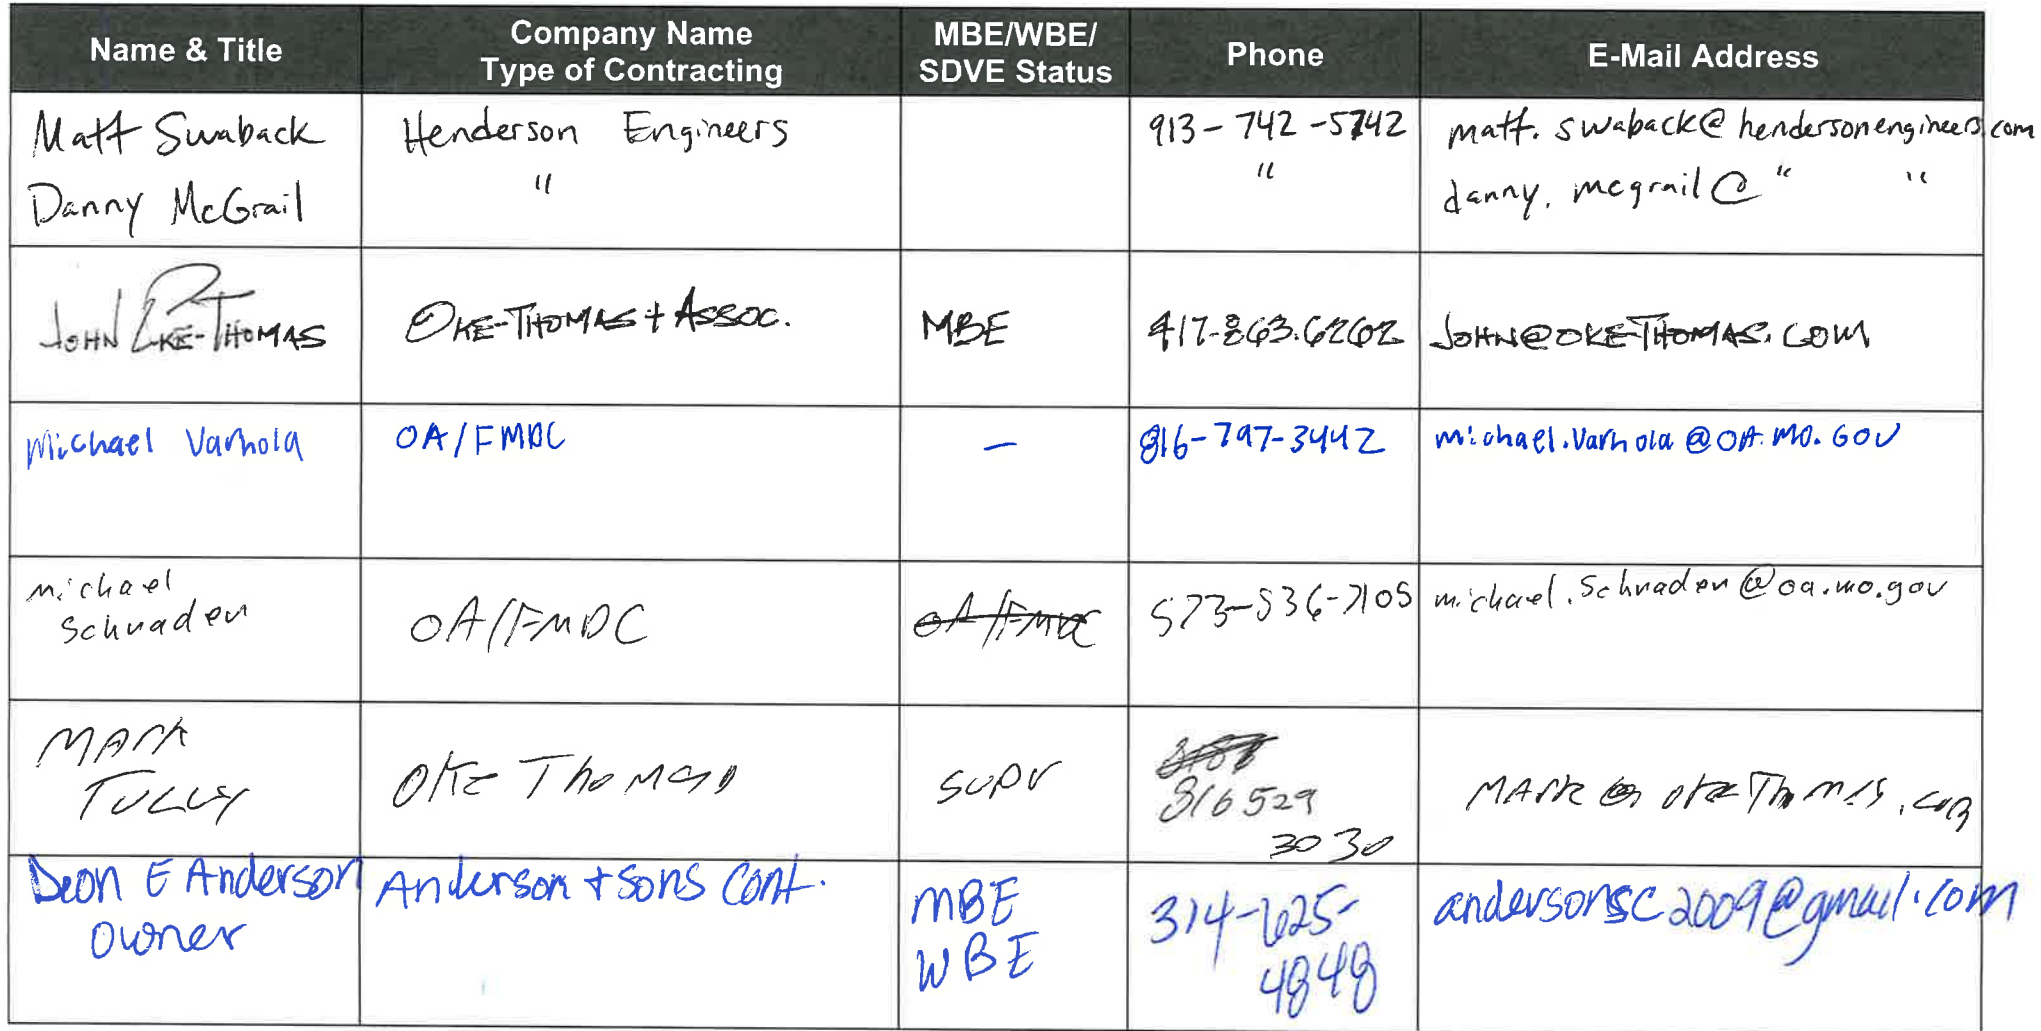 Name & Title
Company Name
Type of Contracting
MBE/WBE/
SDVE Status
Phone
E-Mail Address
Matt Swaback Henderson Engineers 913-742-5742 matt.swaback@hendersonengineers.com
Danny McGrail " " danny.mcgrail@ " "
JOHN OKE-THOMAS OKE-THOMAS + ASSOC. MBE 417-863.6262 JOHN@OKE-THOMAS.COM
Michael Varhola OA/FMDC — 816-797-3442 michael.varhola@OA.MO.GOV
michael
Schrader OA/FMDC OA/FMDC 573-536-7105 michael.Schrader@oa.mo.gov
MARK
TULLY OKE Thomas SUPV 816 529
3030 MARK@okeThomas.com
Deon E Anderson Anderson + Sons Cont. MBE 314-625- andersonsc2009@gmail.com
Owner WBE 4848